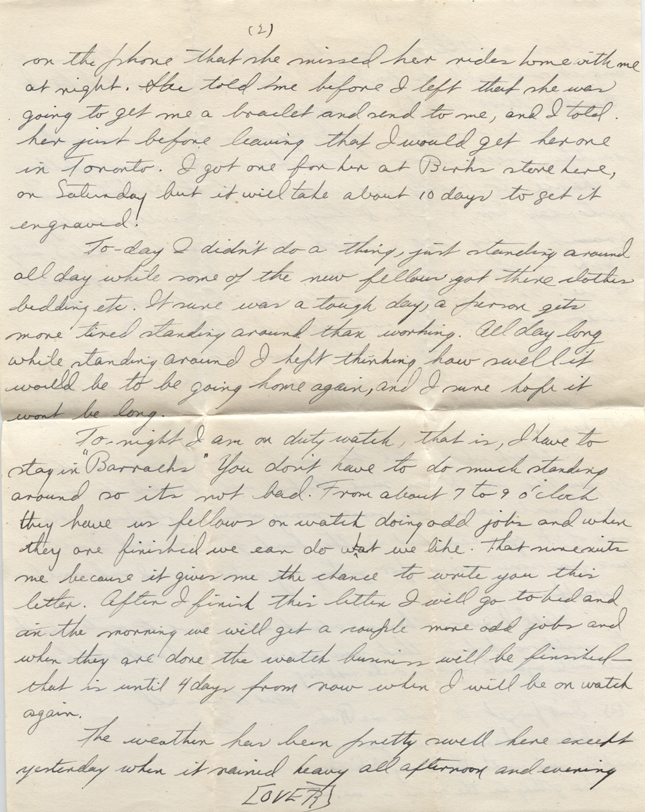 (2)
on the phone that she missed her rides home with me
at night. She told me before I left that she was
going to get me a braclet and send to me, and I told
her just before leaving that I would get her one
in Toronto. I got one for her at Birks store here,
on Saturday but it will take about 10 days to get it
engraved.
To-day I didn't do a thing, just standing around
all day while some of the new fellows got there clothes
bedding etc. It sure was a tough day, a person gets
more tired standing around than working. All day long
while standing around I kept thinking how swell it
would be to be going home again, and I sure hope it
wont be long.
To-night I am on duty watch, that is, I have to
stay in "Barracks" You don't have to do much standing
around so its not bad. From about 7 to 9 o'clock
they have us fellows on watch doing odd jobs and when
they are finished we can do what we like. That sure suits
me because it gives me the chance to write you this
letter. After I finish this letter I will go to bed and
in the morning we will get a couple more odd jobs and
when they are done the watch business will be finished
that is until 4 days from now when I will be on watch
again.
The weather has been pretty swell here except
yesterday when it rained heavy all afternoon and evening
[OVER]